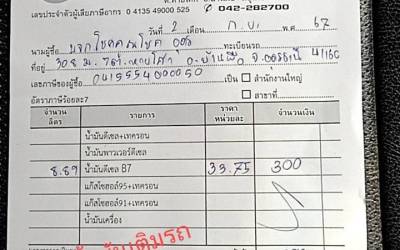 เลขประจำตัวผู้เสียภาษีอากร 0 4135 49000 525 042-282700
วันที่ 2 เดือน ก.ย. พ.ศ 67
นามผู้ซื้อ หจก โชค ทะเบียนรถ
ที่อยู่ 308 ม.7 อ.บ้านผือ จ.อุดรธานี 41160
เลขภาษีของผู้ซื้อ 0415554000050 เป็น สำนักงานใหญ่
อัตราภาษีร้อยละ7 สาขาที่
จำนวนลิตร รายการ ราคาหน่วยละ จำนวนเงิน
น้ำมันดีเซล+เทครอน
น้ำมันพาวเวอร์ดีเซล
8.89 น้ำมันดีเซล B7 33.75 300
แก๊สโซฮอล์95+เทครอน
แก๊สโซฮอล์91+เทครอน
น้ำมันเครื่อง
เติมรถ